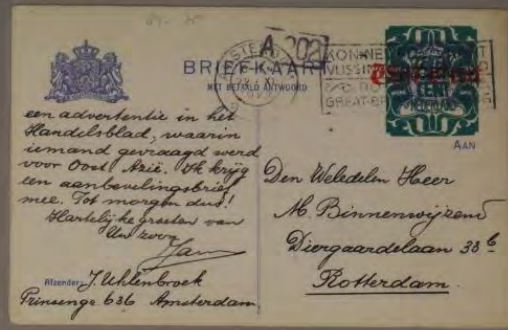 A 202
BRIEFKAART
MET BETAALD ANTWOORD
CENT
NEDERLAND
AAN
een advertentie in het
Handelsblad, waarin
iemand gevraagd werd
voor Oost Azië. Ik krijg
een aanbevelingsbrief
mee. Tot morgen dus!
Hartelijke groeten van
Uw zoon
Jan
Afzender: J. Uhlenbroek
Prinseng. 636 Amsterdam
Den Weledelen Heer
M. Binnenwijzend
Diergaardelaan 33 b
Rotterdam.